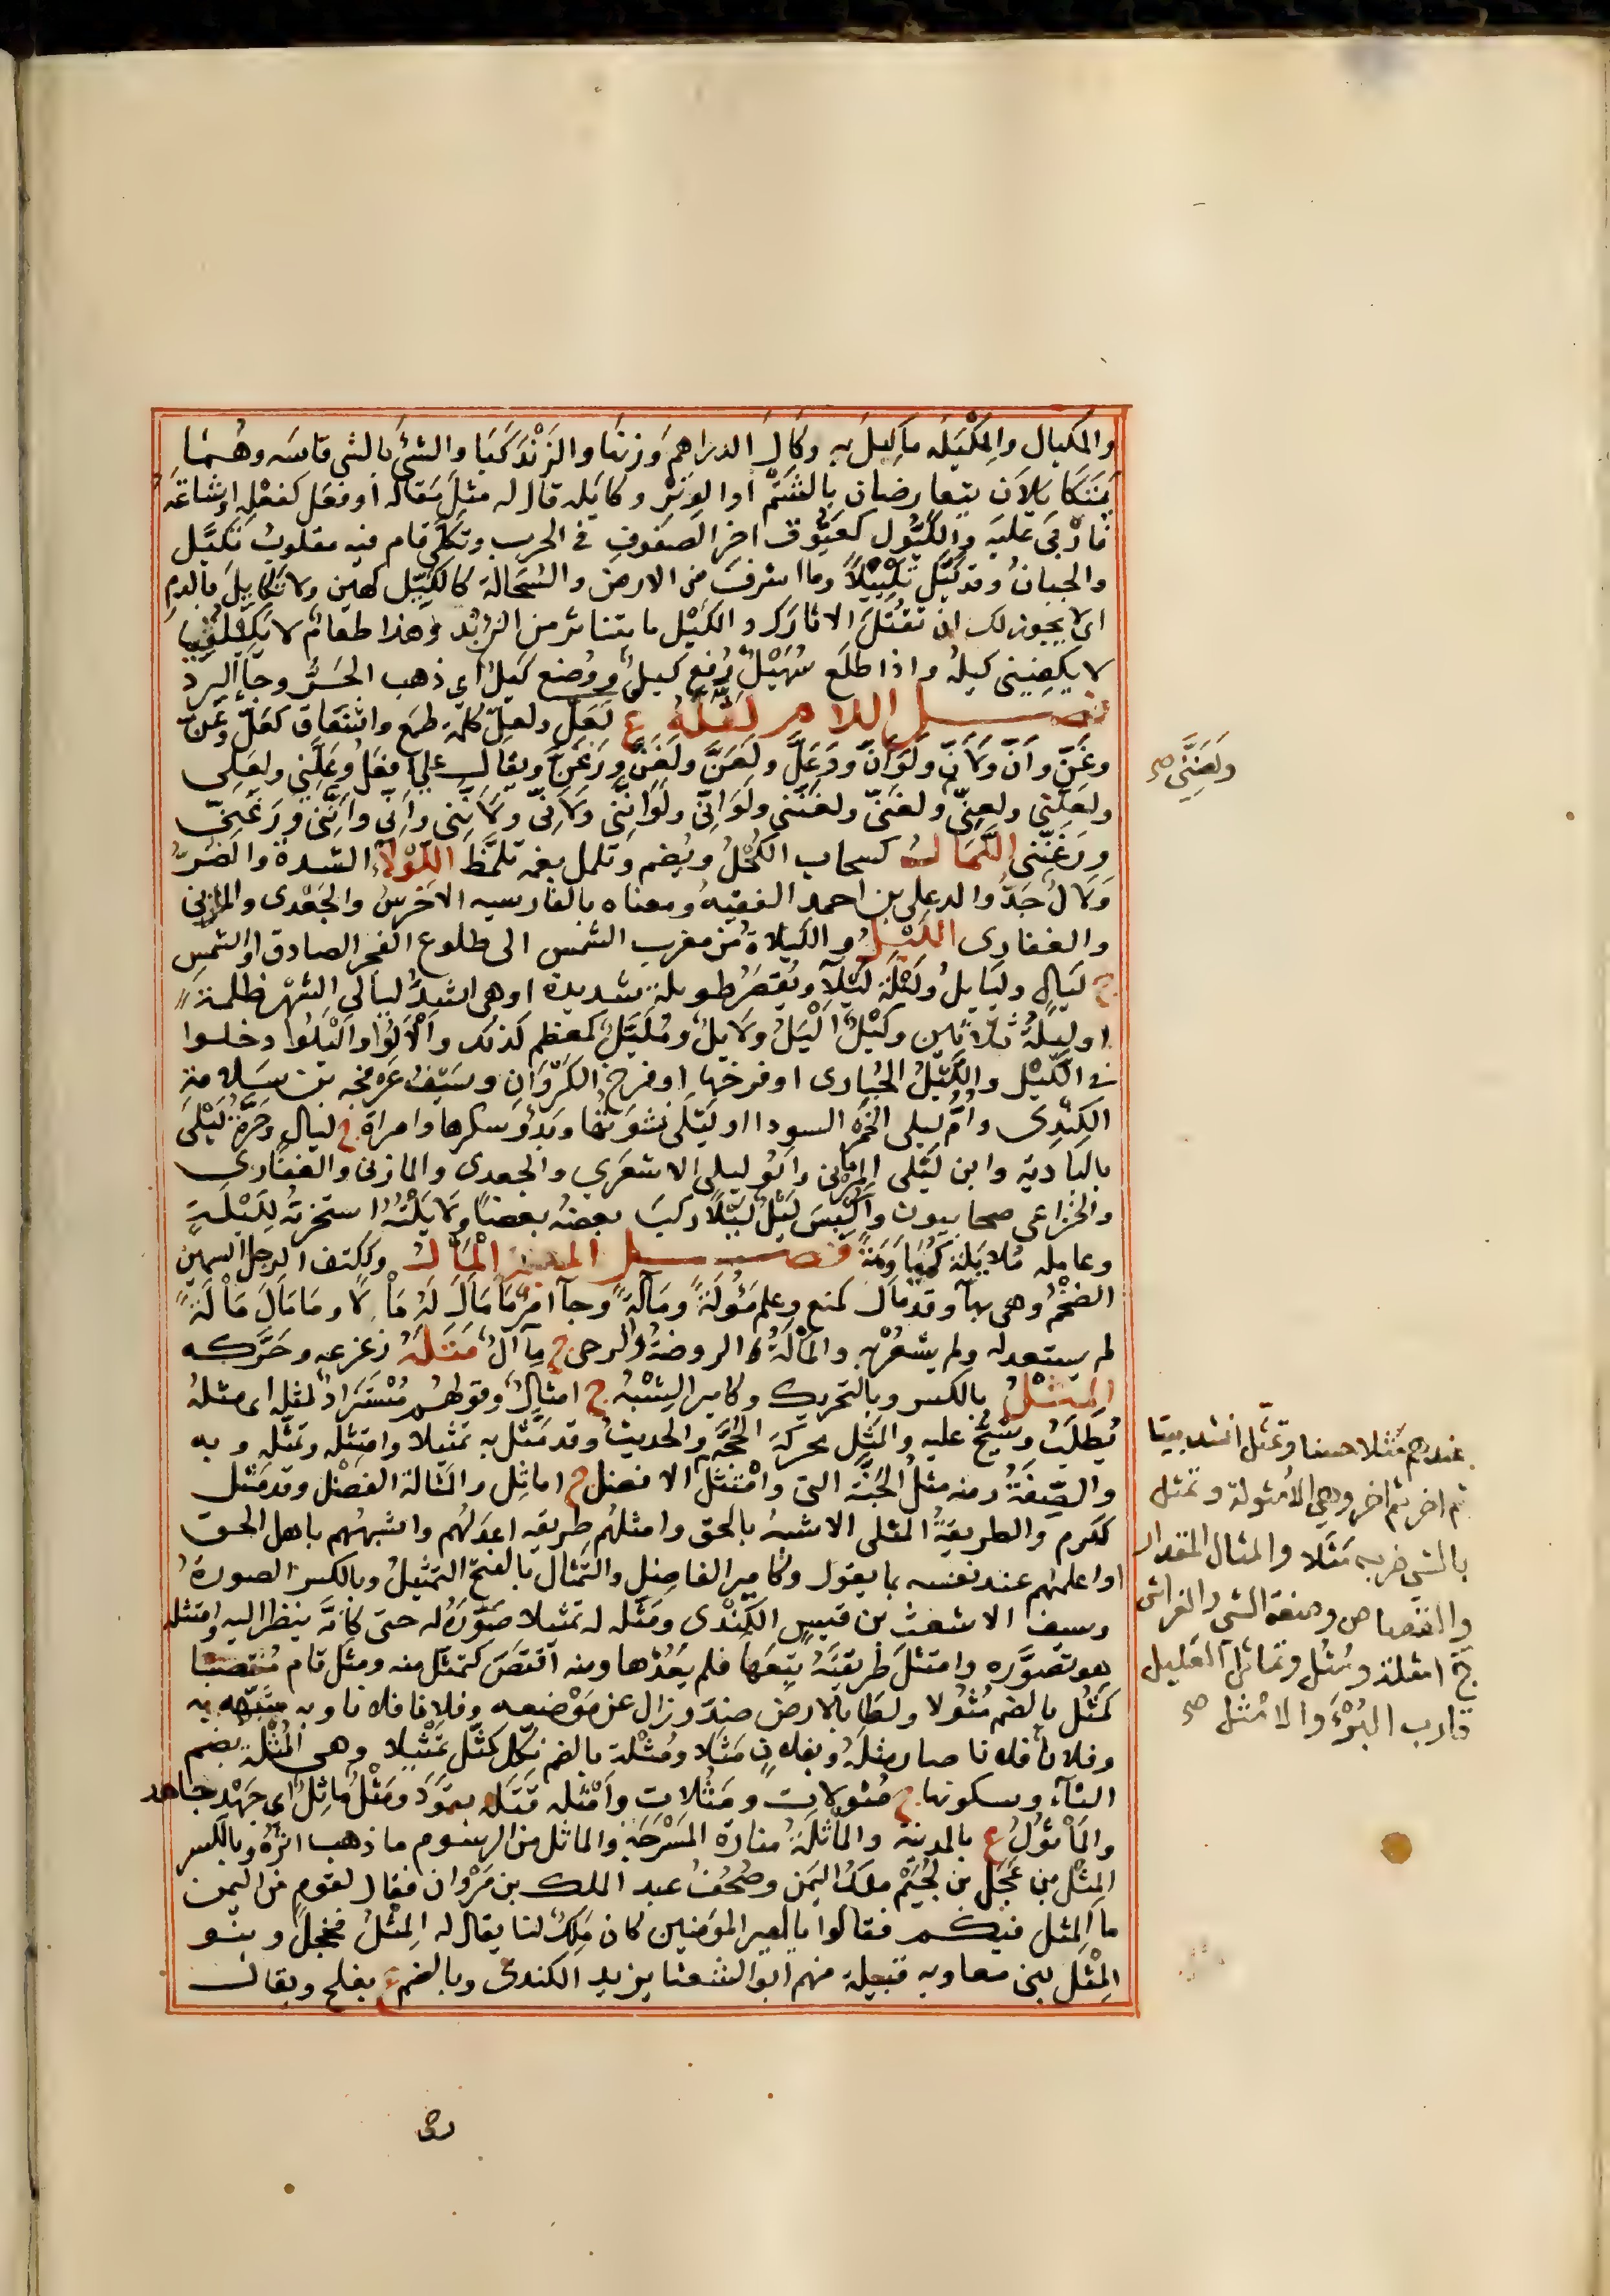 والمكيال والمِكْيَلَه ماكِيلَ به وكَالَ الدراهمَ وزنها والزَنْدَ كَبَا والشئَ بالشى قاسَه وهُما
يَتَكايلاَن يتعارضان بالشَتْم او الوِتْر وكايَله قال له مثلَ مَقاله او فعَل كفعْلِه او شاتمَه
فأرْبَى عليَه والكَيُّول كعَيُّوق اخر الصفوفِ فى الحرب وتكلَّى قام فيه مقلوبُ تَكَيَّل
والجبانُ وقد كَيَّل تَكْيِيْلاً وما اشرفَ من الارض والسُّحَالة كالكَيِّل كهَين ولا تكايلَ بالدم
اى لا يجوز لك ان تقتُلَ الا ثارَك والكَيْل ما يتناثر من الزَنْد وهذا طعامٌ لا يَكيْلُنِى
لا يكفينى كيلهُ واذا طلَع سُهَيْلٌ رُفع كيلٌ ووُضع كيلٌ اى ذهب الحَرُّ وجآء البرد
فصل اللام لَعَلَّ ولعلَّ كلمة طمَع واشفاق كعَلّ وعَنّ
وغَنّ وأنّ ولَأنّ ولَوَأنّ ورَعَلّ ولَعَنَّ ولَغَنَّ ورَغَنَّ ويقال عَلىّ افعَلُ وعَلَّنِي ولعَلى
ولعَلنى ولعنّى ولغنىّ ولغنَّنى ولَوَانّى ولَوَانَّنى ولَاَنّى ولَاَنّنى واَنّى واَنَّنى ورَغَنّى
ورَغَنَّنى اللَّمَالُ كسحاب الكُحْلُ ويُضم وتلمل بفمه تلمّظ اللَّوْلآءُ الشدة والضُرُّ
وَلالُ جَدُّ والد على بن احمد الفقيهُ ومعناه بالفارسيه الاخْرسُ والجَعْدى والمازنى
والغفارى اللَيْلُ والليلاةُ من مغرب الشمس الى طلوع الفجر الصادق او الشمس
ج لَيالٍ وليَايلُ ولَيْلَة لَيْلآءُ وتُقصَرُ طويلة شديدة او هى اشدُّ ليالى الشهْر ظلمةً
او ليلةُ ثلاثين ولَيْلٌ اَلْيَلُ ولَايلٌ ومُلَيَّلٌ كمعظم كذلك وأَلَالُوا وأَلْيَلُوا دخلوا
فى اللَّيْل واللَّيْلُ الحُبارى او فرخها او فرخُ الكَرْوَانِ وسَيْفُ عَرْفجه بن سَلامةِ
الكِنْدِى وأُمّ ليلى الخَمْرُ السودا او لَيْلَى نَشْوَتُها وبَدْؤ سكرها وامراة ج ليالٍ وحَرَّةُ لَيْلى
بالبادية وابن لَيْلَى المزَنى وابو ليلى الاشعَرى والجعدى والمازنى والغفارى
والخزاعى صحابيون وأَلْبَسَ لَيْلٌ لَيْلاً ركبَ بعضهُ بعضاً ولَايَلْتُهُ استخرته لِلَيْلَةٍ
وعامله مُلايَلة كمُيَاوَمَةً فصل الميم المَألُ وككتف الرجل السمين
الضخْمُ وهى بهآ وقد مأل كمنع وعلم مَؤُلَةً ومَآلَةً وجآء امرٌ مَا مَأَلَ لَهُ مَأْلاً وما مَألَ مَأْلَهُ
لم يستعد له ولم يشعُرْبه والمَأْلَةُ الروضةُ والرحى ج مآلٌ مَتَلَهُ زعزعه وحَرَّكه
المِثْلُ بالكسر وبالتحريك وكامير الشِبْهُ ج امثالٌ وقولهُم مُسْتَرَادٌ لمثلِه اى مثلهُ
يُطلَبُ ويُشَحُّ عليه والمَثَل محركة الحُجَّة والحديثُ وقد مَثَّل به تمثيلا وامتثله وتمثَّله وبه
والصِّفَةُ ومنه مثلُ الجَنّة التى وامْتثلَ الافضل ج اماثِل والمَثَالة الفضْل وقد مَثُل
ككرم والطريقةُ المثلى الاشبهُ بالحق وامثلهُم طريقه اعدَلهُم واشبههُم باهل الحق
او اعلمهُم عند نفسه بما يقول وكامير الفاضل والتمثال بالفتح التمثيلُ وبالكسر الصورةُ
وسيف الاشعث بن قيسٍ الكِنْدى ومَثَّله له تمثيلا صَوَّرَهُ له حتى كانَّهُ ينظر اليه وامتثله
هو تصوَّره وامتثلَ طريقتَهُ تبِعَها فلم يَعْدُها ومنه اقتصَّ كتمثّل منه ومثَل قام منتصبا
كمَثُل بالضم مُثُولا ولَطَا بالارض ضدّ وزال عن مَوْضعه وفلانا فلانا وبه شبّهه به
وفلانٌ فلانا صار مثلَهُ وبفلانٍ مَثْلا ومُثْلة بالضم نكّل كمثّل تمثيلا وهى المُثلة بضم
الثآء وسكونها ج مُثُولات ومَثُلات وأمْثله قتَله بقَوَد ومَثْلٌ ماثِلٌ اى جَهْد جاهد
والمَاْثُولُ ع بالمدينة والماثلَةُ منارة المَسْرَجَة والماثل من الرسوم ما ذهب اثرُهُ وبالكسر
المِثْل بن عَجْل بن لُجَيْم ملكُ اليَمَن وصُحِفُ عبد الملك بن مَرْوان فقال لقومٍ من اليمن
ما المثل فيكم فقالوا يا امير المؤمنين كان مَلِكٌ لنا يقال له المِثْلُ فخجل وبنو
المِثْل بن معاويه قبيلة منهم ابو الشعثا يزيد الكندى وبالضم ع بفلج ويقال
ولَعَنَّنِى صح
عندهم مَثَلا حسنا وتمثَّل انشد بيتا
ثم اخر ثم اخر وهى الأمثولة وتمثل
بالشى ضربه مَثَلا والمثال المقدار
والقصاص وصفة الشى والفراش
ج امثلة ومُثُل وتماثل العليل
قارب البُرْءَ والامْثل صح